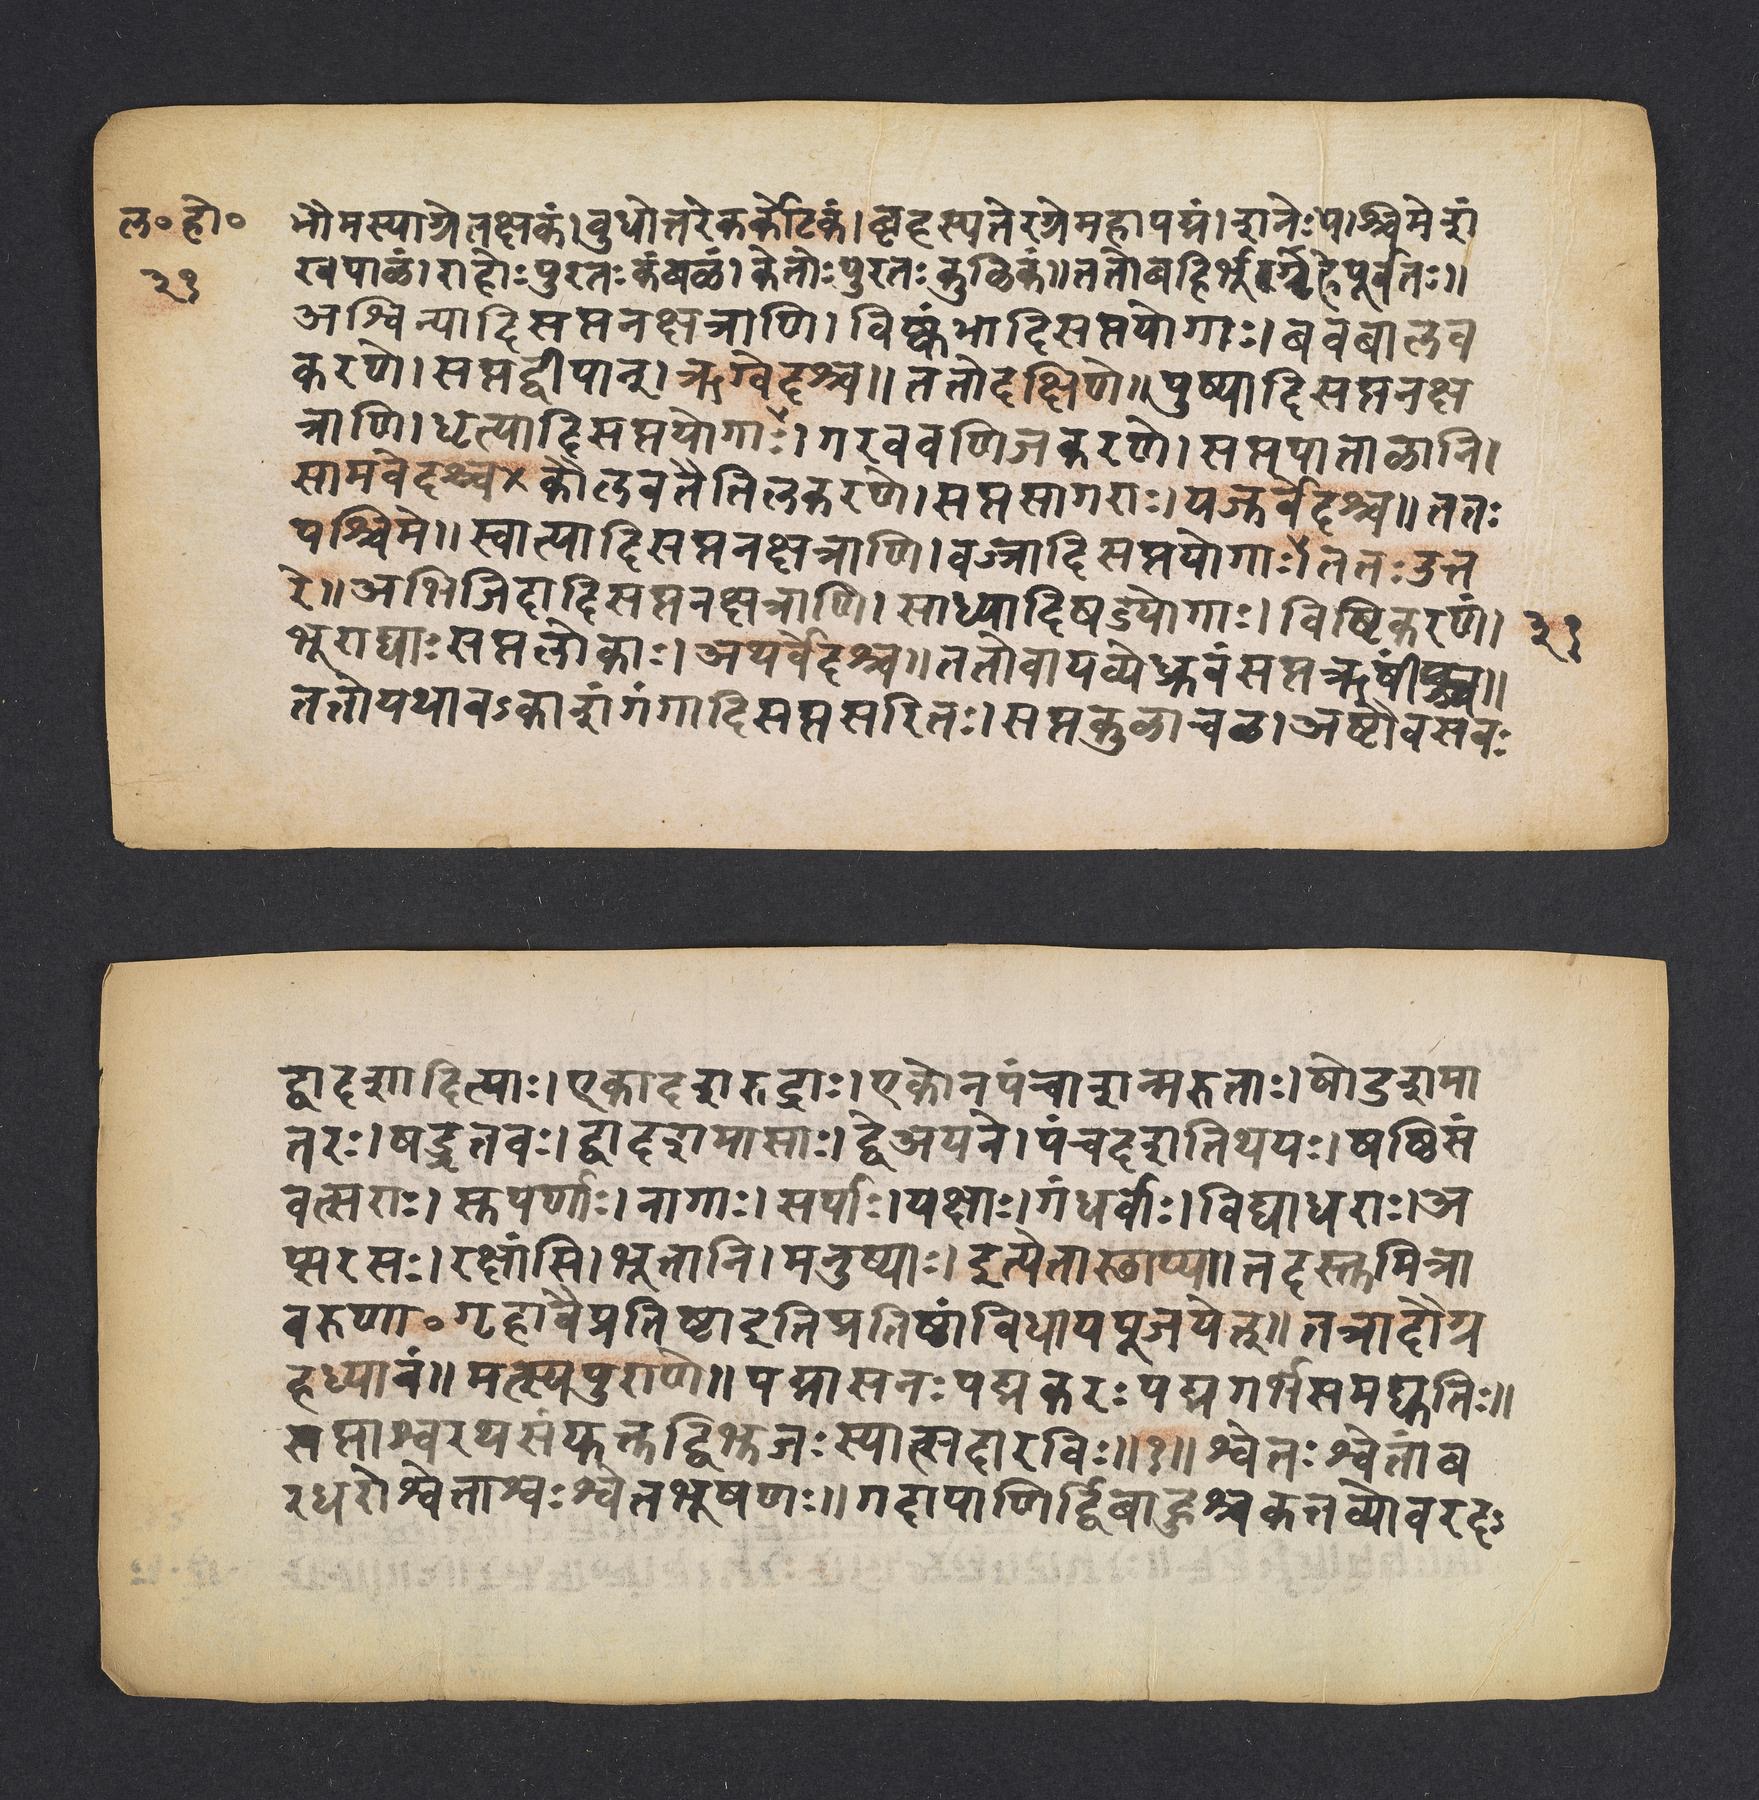 ल॰हो॰
२१
भौमस्याग्रेतक्षकं।बुधोत्तरेकर्कोटकं।बृहस्पतेरग्रेमहापद्मं।शनेःपश्चिमेशं
खपाळं।राहोःपुरतःकंबळं।केतोःपुरतःकुळिकं॥ततोबहिर्भूर्गृहेपूर्वतः॥
अश्विन्यादिसप्तनक्षत्राणि।विष्कंभादिसप्तयोगाः।बवबालव
करणे।सप्तद्वीपान्।ऋग्वेदश्च॥ततोदक्षिणे॥पुष्यादिसप्तनक्ष
त्राणि।धृत्यादिसप्तयोगाः।गरववणिजकरणे।सप्तपाताळानि।
सामवेदश्च×कौलवतैतिलकरणे।सप्तसागराः।यजुर्वेदश्च॥ततः
पश्चिमे॥स्वात्यादिसप्तनक्षत्राणि।वज्रादिसप्तयोगाः।ततःउत्त
रे॥अभिजिदादिसप्तनक्षत्राणि।साध्यादिषड्योगाः।विष्टिकरणं।
२१
भूराद्याःसप्तलोकाः।अथर्वेदश्च॥ततोवायव्येध्रुवंसप्तऋषींश्च॥
ततोयथावऽकाशंगंगादिसप्तसरितः।सप्तकुळाचळ।अष्टौवसवः
द्वादशादित्याः।एकादशरुद्राः।एकोनपंचाशन्मरुताः।षोडशमा
तरः।षडृतवः।द्वादशमासाः।द्वेअयने।पंचदशतिथयः।षष्ठिसं
वत्सराः।सुपर्णाः।नागाः।सर्पाः।यक्षाः।गंधर्वाः।विद्याधराः।अ
प्सरसः।रक्षांसि।भूतानि।मनुष्याः।इत्येतास्छाप्या।तदस्तुमित्रा
वरुणा॰गृहावैप्रतिष्टाइतिप्रतिष्ठांविधायपूजयेत्॥तत्रादौग्र
हध्यानं॥मत्स्यपुराणे॥पद्मासनःपद्मकरःपद्मगर्भसमद्युतिः॥
सप्ताश्वरथसंयुक्तद्विभुजःस्यात्सदारविः॥१॥श्वेतःश्वेतांब
रधरोश्वेताश्वःश्वेतभूषणः॥गदापाणिर्द्विबाहुश्चकत्तव्योवरदः